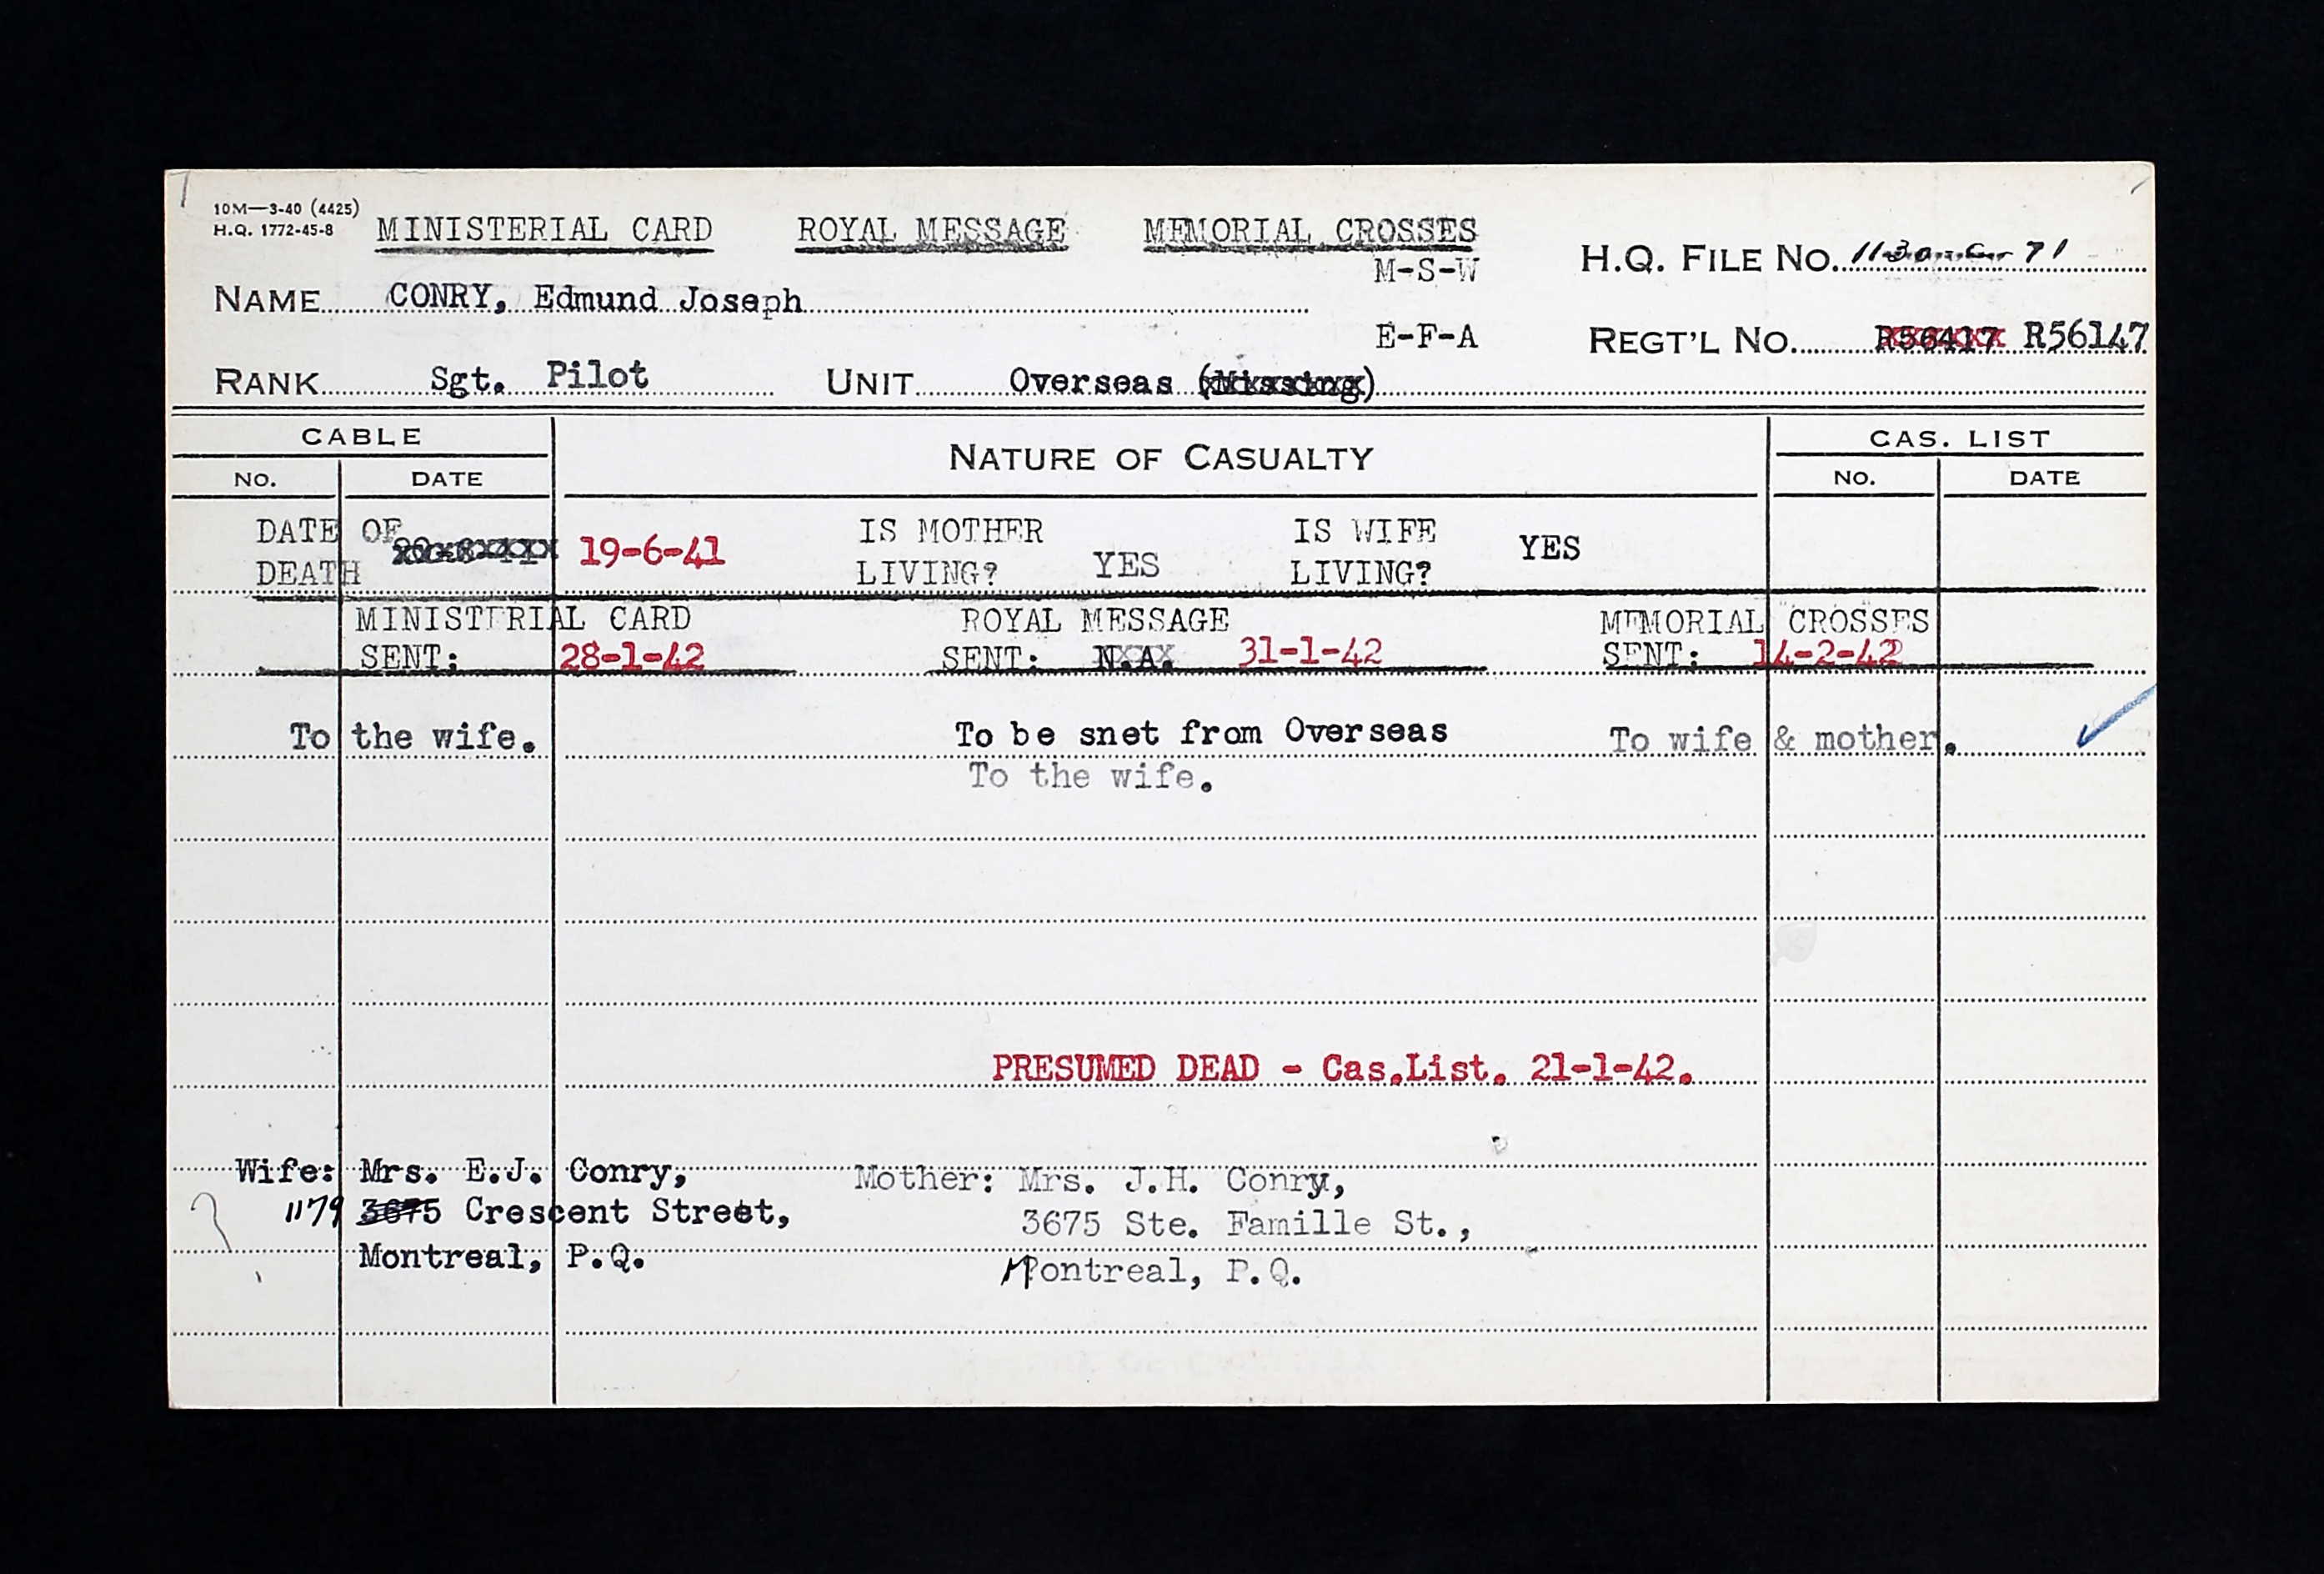 10M—3-40 (4425)
H.Q. 1772-45-8
MINISTERIAL CARD ROYAL MESSAGE MEMORIAL CROSSES
M-S-W
H.Q. FILE NO. 71
NAME CONRY, Edmund Joseph
E-F-A
REGT'L NO. R56417 R56147
RANK Sgt. Pilot UNIT Overseas (Missing)
CABLE
NATURE OF CASUALTY
CAS. LIST
NO. DATE
NO. DATE
DATE OF DEATH 19-6-41 IS MOTHER LIVING? YES IS WIFE LIVING? YES
MINISTERIAL CARD ROYAL MESSAGE MEMORIAL CROSSES
SENT: 28-1-42 SENT: N.A. 31-1-42 SENT: 14-2-42
To the wife. To be snet from Overseas To wife & mother.
To the wife.
PRESUMED DEAD - Cas.List. 21-1-42.
Wife: Mrs. E.J. Conry, Mother: Mrs. J.H. Conry,
1179 3675 Crescent Street, 3675 Ste. Famille St.,
Montreal, P.Q. Montreal, P.Q.